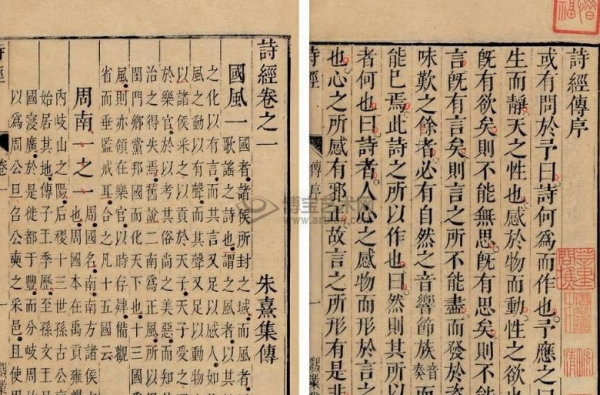 詩經傳序
或有問於予曰詩何爲而作也予應之
生而靜天之性也感於物而動性之欲
旣有欲矣則不能無思旣有思矣則
言旣有言矣則言之所不能盡而發於
味歎之餘者必有自然之音響節族奏
能已焉此詩之所以作也曰然則其所
者何也曰詩者人心之感物而形於言之
也心之所感有邪正故言之所形有是非
詩經
傳序
詩經卷之一
朱熹集傳
國風一
國者諸侯所封之域而風者
歌謠之詩也謂之風者以
之化以有言而其言又足以感人如
風之動以有聲而其聲又足以動物
以諸侯采之以貢於天子天子受之
於樂官於以考其俗尚之美惡而知
治之得失焉舊說二南爲正風所以
閨門鄉黨邦國而化天下也十三國
風則亦領在樂官以時存肄備觀
省而垂監戒耳合之凡十五國云
周南一之一
周國名南南方諸侯
也周國本在禹貢雍
內岐山之陽后稷十三世孫古公
始居其地傳子王季歷至孫文王
國寖廣於是徙都于豐而分岐周
以爲周公旦召公奭之采邑且使
詩經
卷一